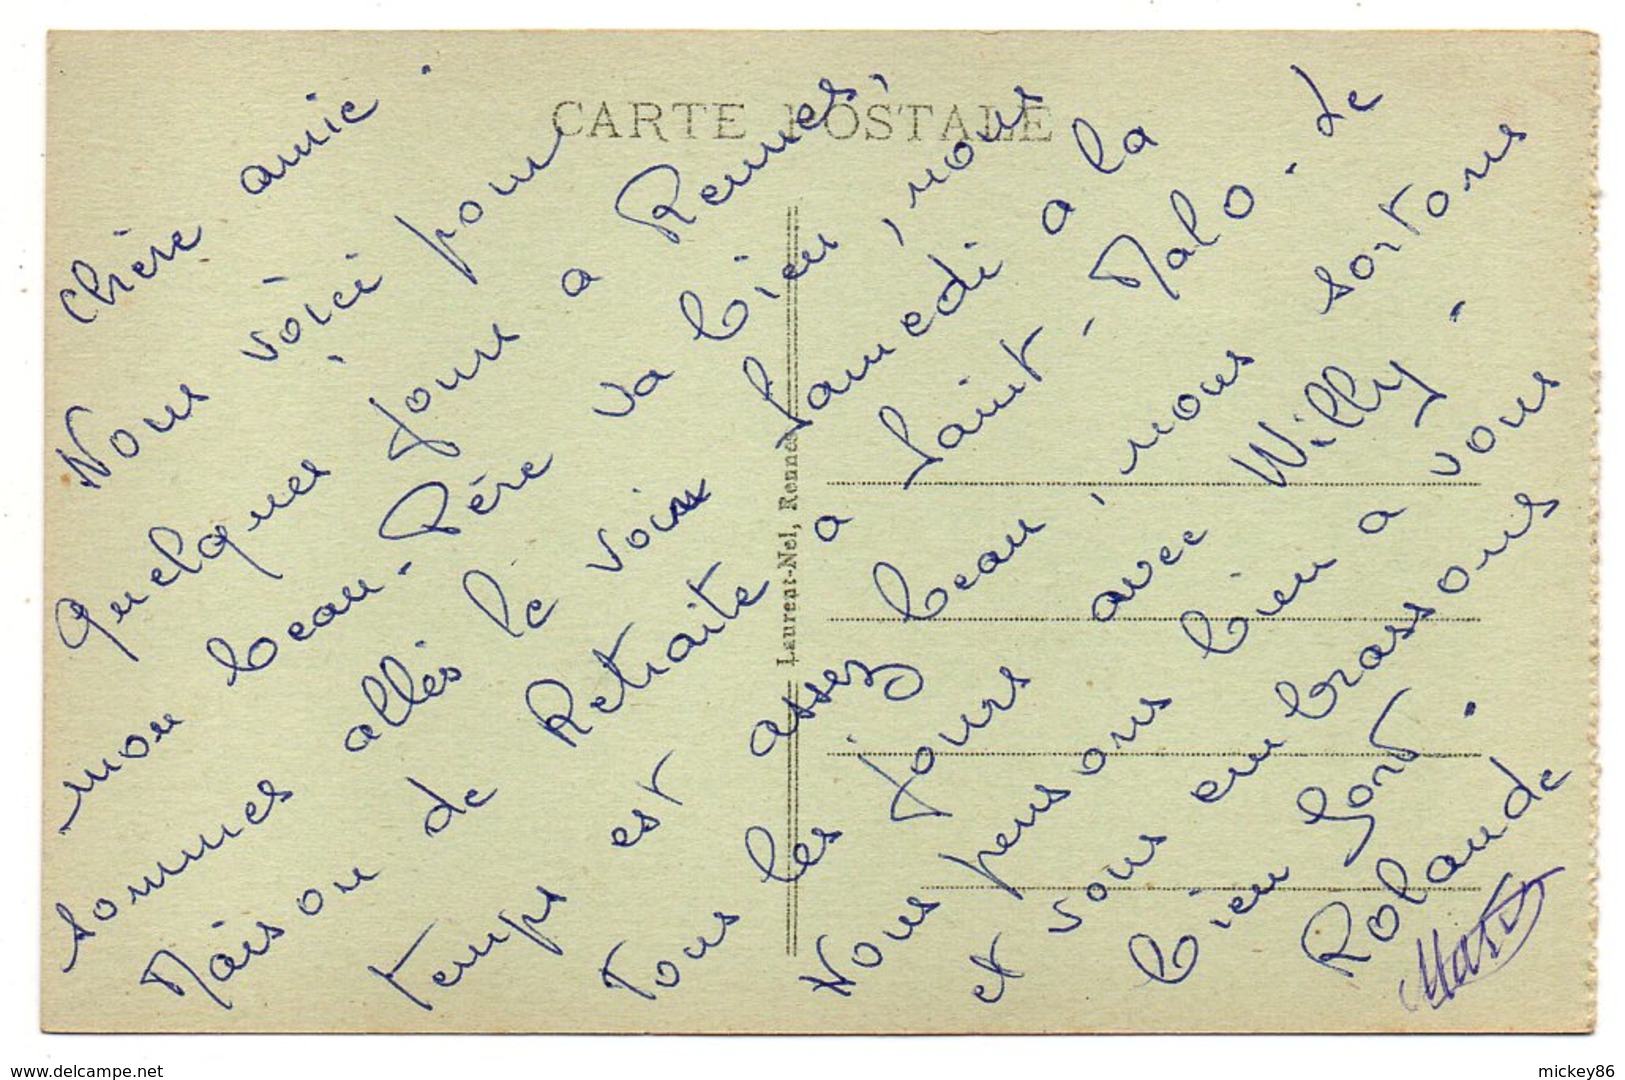 CARTE POSTALE
Chère amie.
Nous voici pour
quelques jours a Rennes,
mon beau-Père va bien, nous
sommes allés le voir Samedi a la
Maison de Retraite a Saint-Malo. le
temps est assez beau, nous sortons
Tous les jours avec Willy.
Nous pensons bien a vous
et vous embrassons
bien fort.
Rolande
Laurent-Nel, Rennes
www.delcampe.net
mickey86